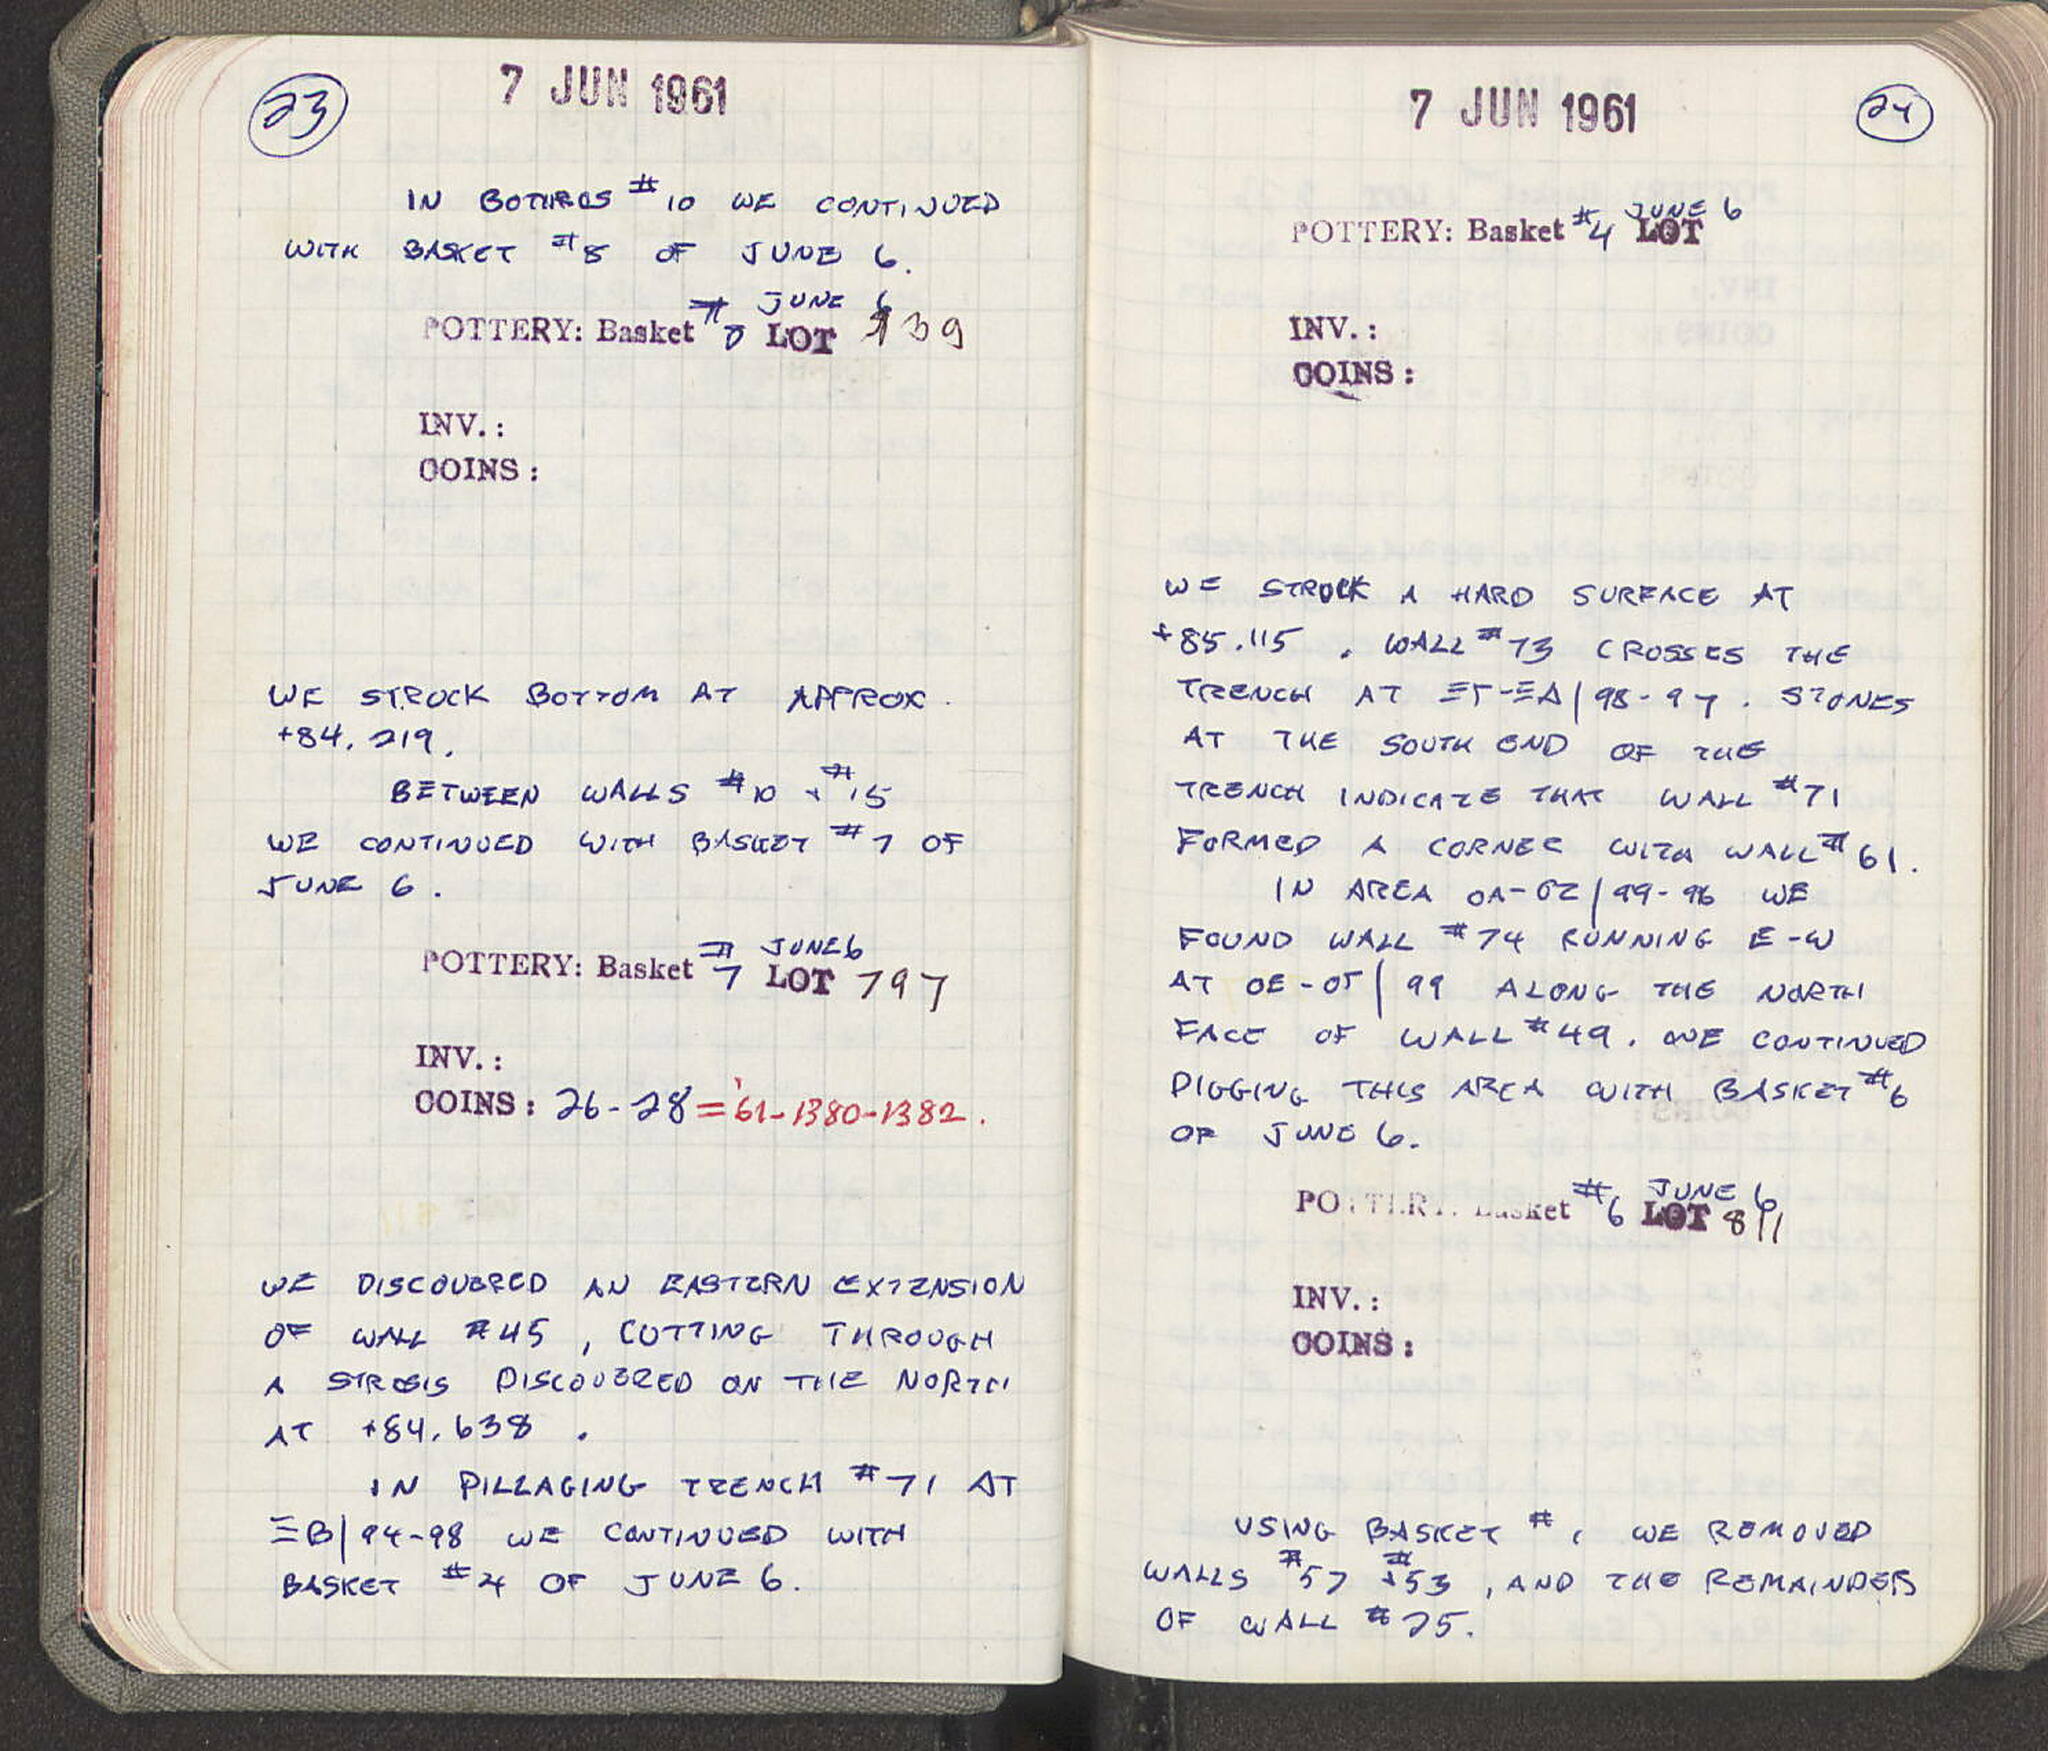 23
7 JUN 1961
IN BOTHROS #10 WE CONTINUED
WITH BASKET #8 OF JUNE 6.
JUNE 6
POTTERY: Basket #8 LOT 739
INV.:
COINS:
WE STRUCK BOTTOM AT APPROX.
+84.219.
BETWEEN WALLS #10 + #15
WE CONTINUED WITH BASKET #7 OF
JUNE 6.
JUNE 6
POTTERY: Basket #7 LOT 797
INV.:
COINS: 26-28 = '61-1380-1382.
WE DISCOVERED AN EASTERN EXTENSION
OF WALL #45, CUTTING THROUGH
A STROSIS DISCOVERED ON THE NORTH
AT +84.638.
IN PILLAGING TRENCH #71 AT
ΞB/94-98 WE CONTINUED WITH
BASKET #4 OF JUNE 6.
7 JUN 1961
24
JUNE 6
POTTERY: Basket #4 LOT
INV.:
COINS:
WE STRUCK A HARD SURFACE AT
+85.115. WALL #73 CROSSES THE
TRENCH AT /98-97. STONES
AT THE SOUTH END OF THE
TRENCH INDICATE THAT WALL #71
FORMED A CORNER WITH WALL #61.
IN AREA OA-OZ/99-96 WE
FOUND WALL #74 RUNNING E-W
AT /99 ALONG THE NORTH
FACE OF WALL #49. WE CONTINUED
DIGGING THIS AREA WITH BASKET #6
OF JUNE 6.
JUNE 6
POTTERY: Basket #6 LOT 811
INV.:
COINS:
USING BASKET #1 WE REMOVED
WALLS #57 + #53, AND THE REMAINDER
OF WALL #25.